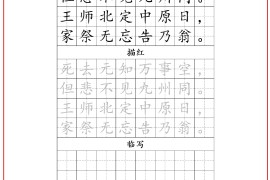 但悲不见九州同。
王师北定中原日，
家祭无忘告乃翁。
描红
死去无知万事空，
但悲不见九州同。
王师北定中原日，
家祭无忘告乃翁。
临写